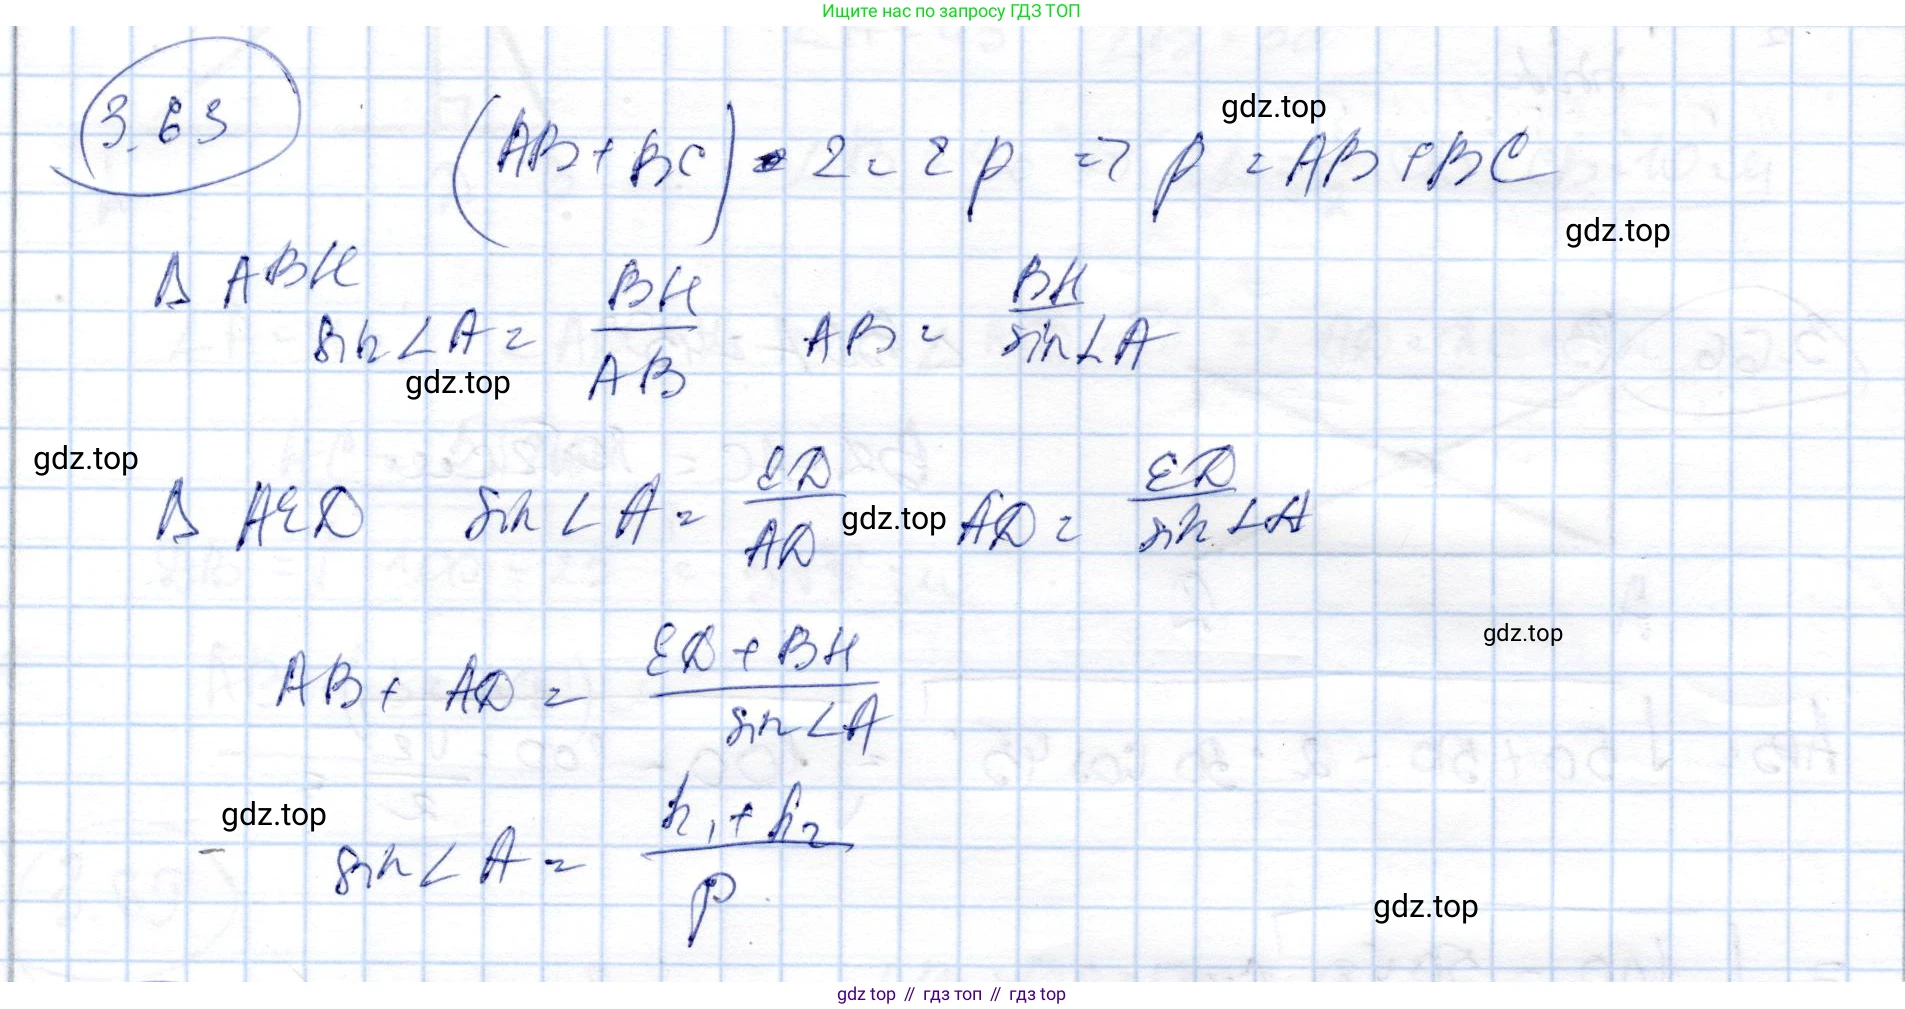 Ищите нас по запросу ГДЗ ТОП
3.63
(AB + BC) · 2 = 2p => p = AB + BC
gdz.top
gdz.top
Δ ABH
sin∠A = BH/AB AB = BH/sin∠A
gdz.top
gdz.top
Δ AED sin∠A = ED/AD gdz.top AD = ED/sin∠A
gdz.top
AB + AD = ED + BH/sin∠A
gdz.top
sin∠A = h₁ + h₂/p
gdz.top
gdz top // гдз топ // гдз top